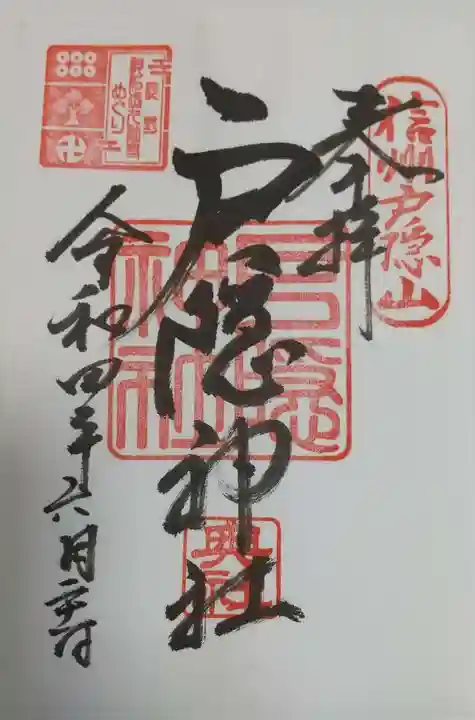 信州戸隠山
奉拝
戸隠神社
戸隠神社
奥社
令和四年六月二十六日
めぐり